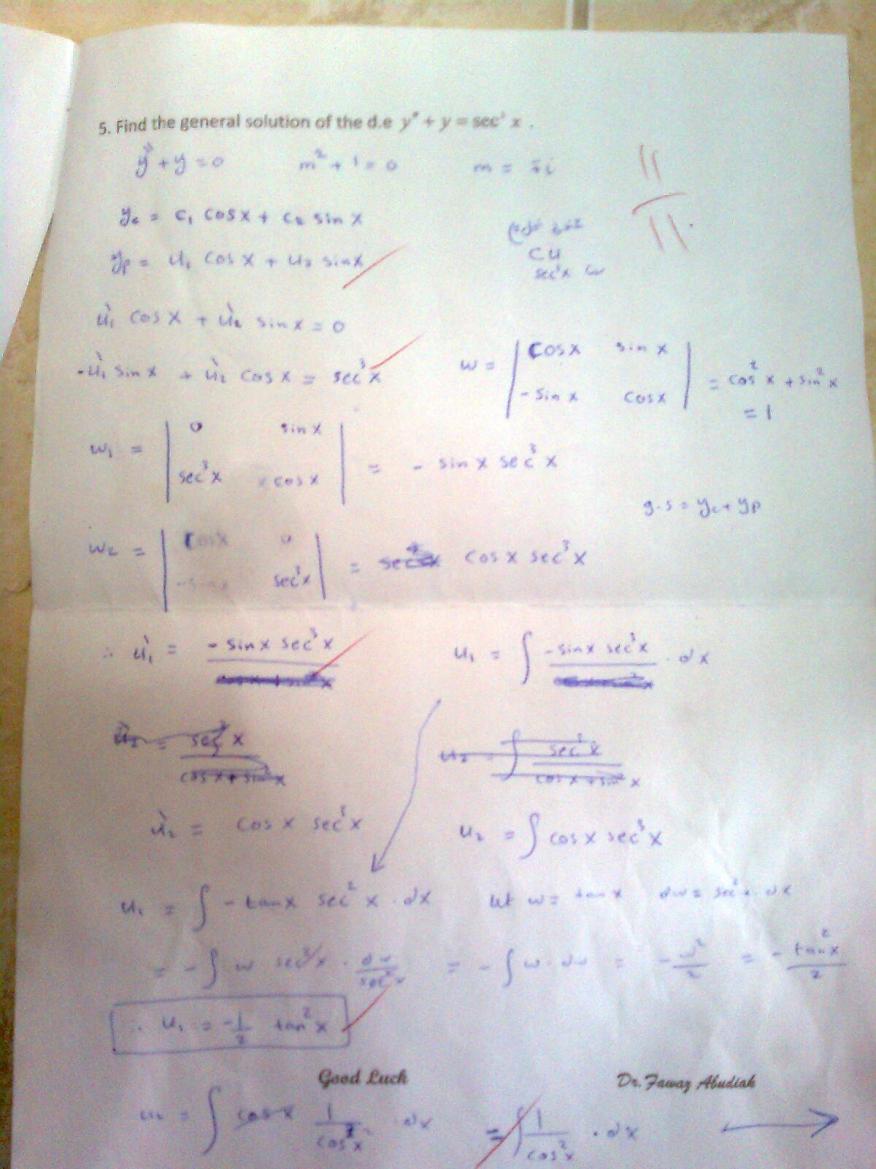 5. Find the general solution of the d.e y″ + y = sec³ x .
y″ + y = 0 m² + 1 = 0 m = ∓i
11
11
yc = c₁ cos x + c₂ sin x
yp = u₁ cos x + u₂ sin x
sec³x
u₁' cos x + u₂' sin x = 0
-u₁' sin x + u₂' cos x = sec³x
w = | cos x sin x |
| -sin x cos x | = cos² x + sin² x
= 1
w₁ = | 0 sin x |
| sec³x cos x | = - sin x sec³ x
g.s = yc + yp
w₂ = | cos x 0 |
| -sin x sec³x | = cos x sec³ x
∴ u₁' = - sin x sec³ x u₁ = ∫ - sin x sec³ x . dx
u₂' = cos x sec³ x u₂ = ∫ cos x sec³ x
u₁ = ∫ - tan x sec² x . dx let w = tan x dw = sec² x . dx
= - ∫ w sec² x . dw / sec² x = - ∫ w . dw = - w² / 2 = - tan² x / 2
∴ u₁ = - 1/2 tan² x
Good Luck Dr. Fawaz Abudiak
u₂ = ∫ cos x 1 / cos³ x . dx = ∫ 1 / cos² x . dx